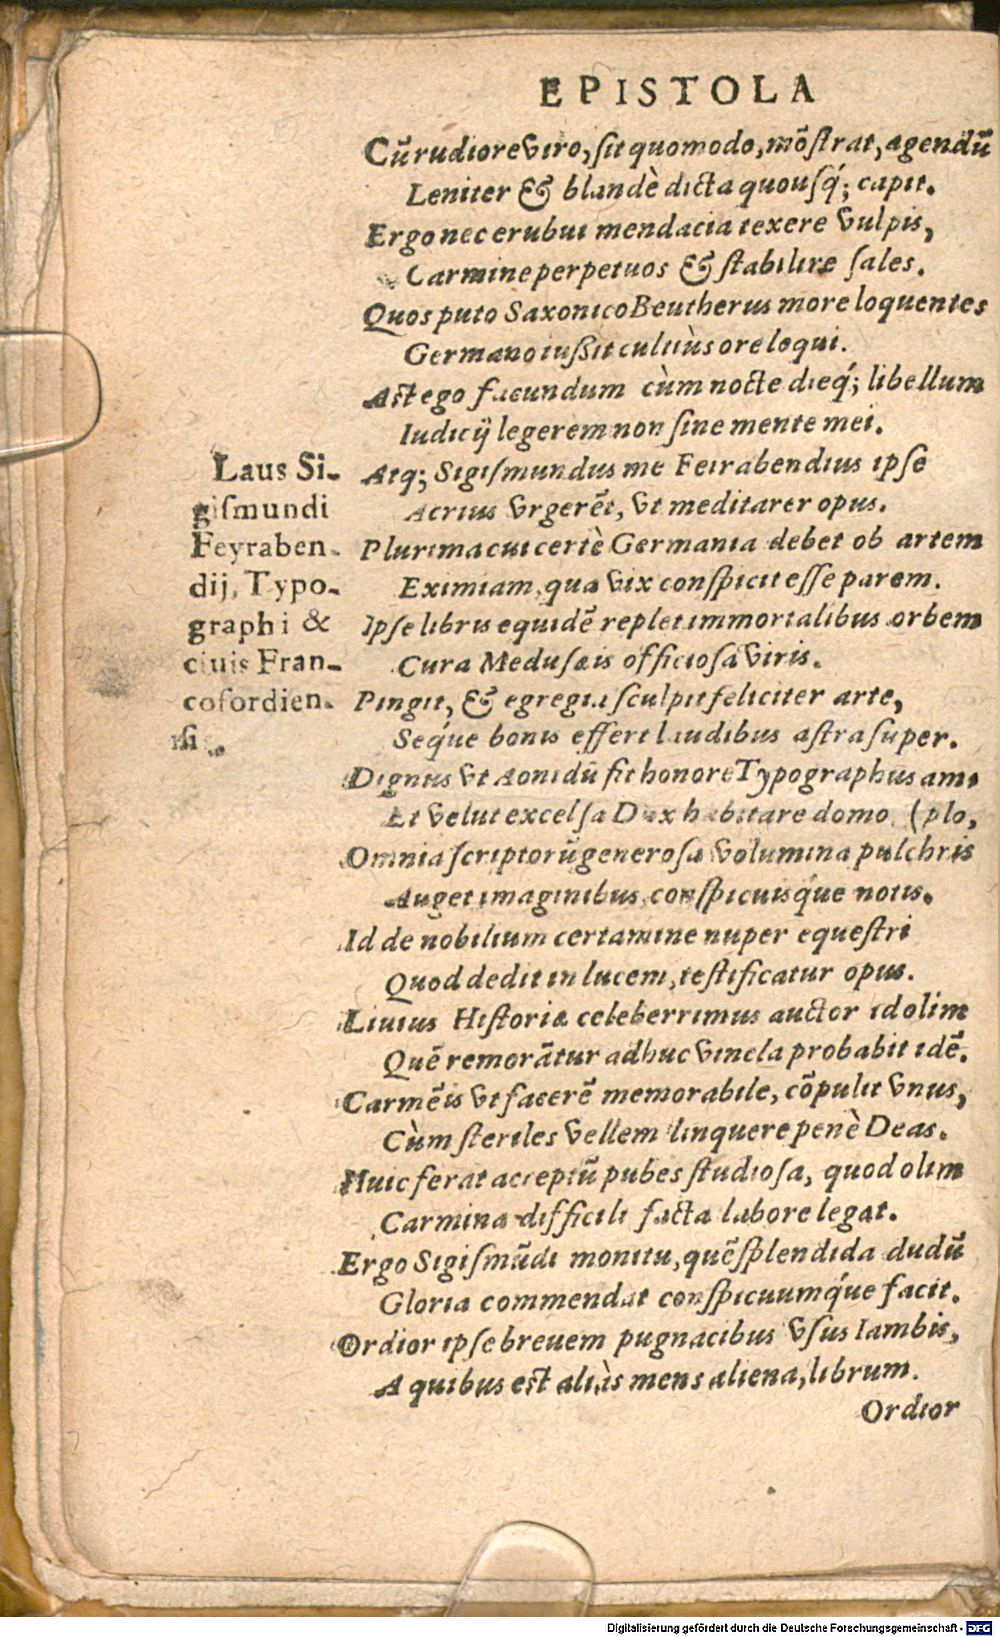 EPISTOLA
Cũ rudiore viro, sit quomodo, mõstrat, agendũ
Leniter & blandè dicta quousq́; capit.
Ergo nec erubui mendacia texere vulpis,
Carmine perpetuos & stabilire sales.
Quos puto Saxonico Beutherus more loquentes
Germano iußit cultiùs ore loqui.
Ast ego facundum cùm nocte dieq́; libellum
Iudicij legerem non sine mente mei.
Laus Si-
gismundi
Feyraben-
dij, Typo-
graphi &
ciuis Fran-
cofordien-
sis.
Atq; Sigismundus me Feirabendius ipse
Acrius vrgerẽt, vt meditarer opus.
Plurima cui certè Germania debet ob artem
Eximiam, qua vix conspicit esse parem.
Ipse libris equidẽ replet immortalibus orbem
Cura Medusæis officiosa viris.
Pingit, & egregia sculpit feliciter arte,
Seq́ue bonis effert laudibus astra super.
Dignus vt Aonidũ fit honore Typographus am-
Et velut excelsa Dux habitare domo. (plo,
Omnia scriptorũ generosa volumina pulchris
Auget imaginibus conspicuisq́ue notis.
Id de nobilium certamine nuper equestri
Quod dedit in lucem, testificatur opus.
Liuius Historiæ celeberrimus auctor id olim
Quẽ remorãtur adhuc vincla probabit idẽ.
Carmẽ is vt facerẽ memorabile, cõpulit vnus,
Cùm steriles vellem linquere penè Deas.
Huic ferat acceptũ pubes studiosa, quod olim
Carmina difficili facta labore legat.
Ergo Sigismũdi monitu, quẽ splendida dudũ
Gloria commendat conspicuumq́ue facit.
Ordior ipse breuem pugnacibus vsus Iambis,
A quibus est aliàs mens aliena, librum.
Ordior
Digitalisierung gefördert durch die Deutsche Forschungsgemeinschaft - DFG